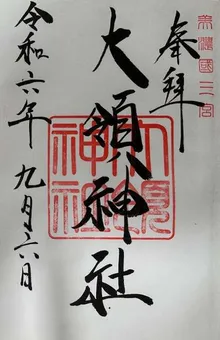 美濃國三宮
奉拝
大領神社
大領神社
令和六年九月二六日